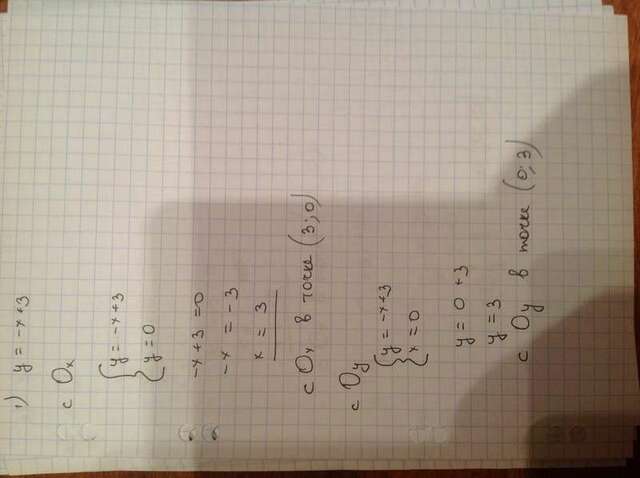 1) y = -x+3
с Ox
y = -x+3
y = 0
-x+3 =0
-x = -3
x = 3
с Ox в точке (3;0)
с Oy
y = -x+3
x = 0
y = 0 +3
y = 3
с Oy в точке (0;3)